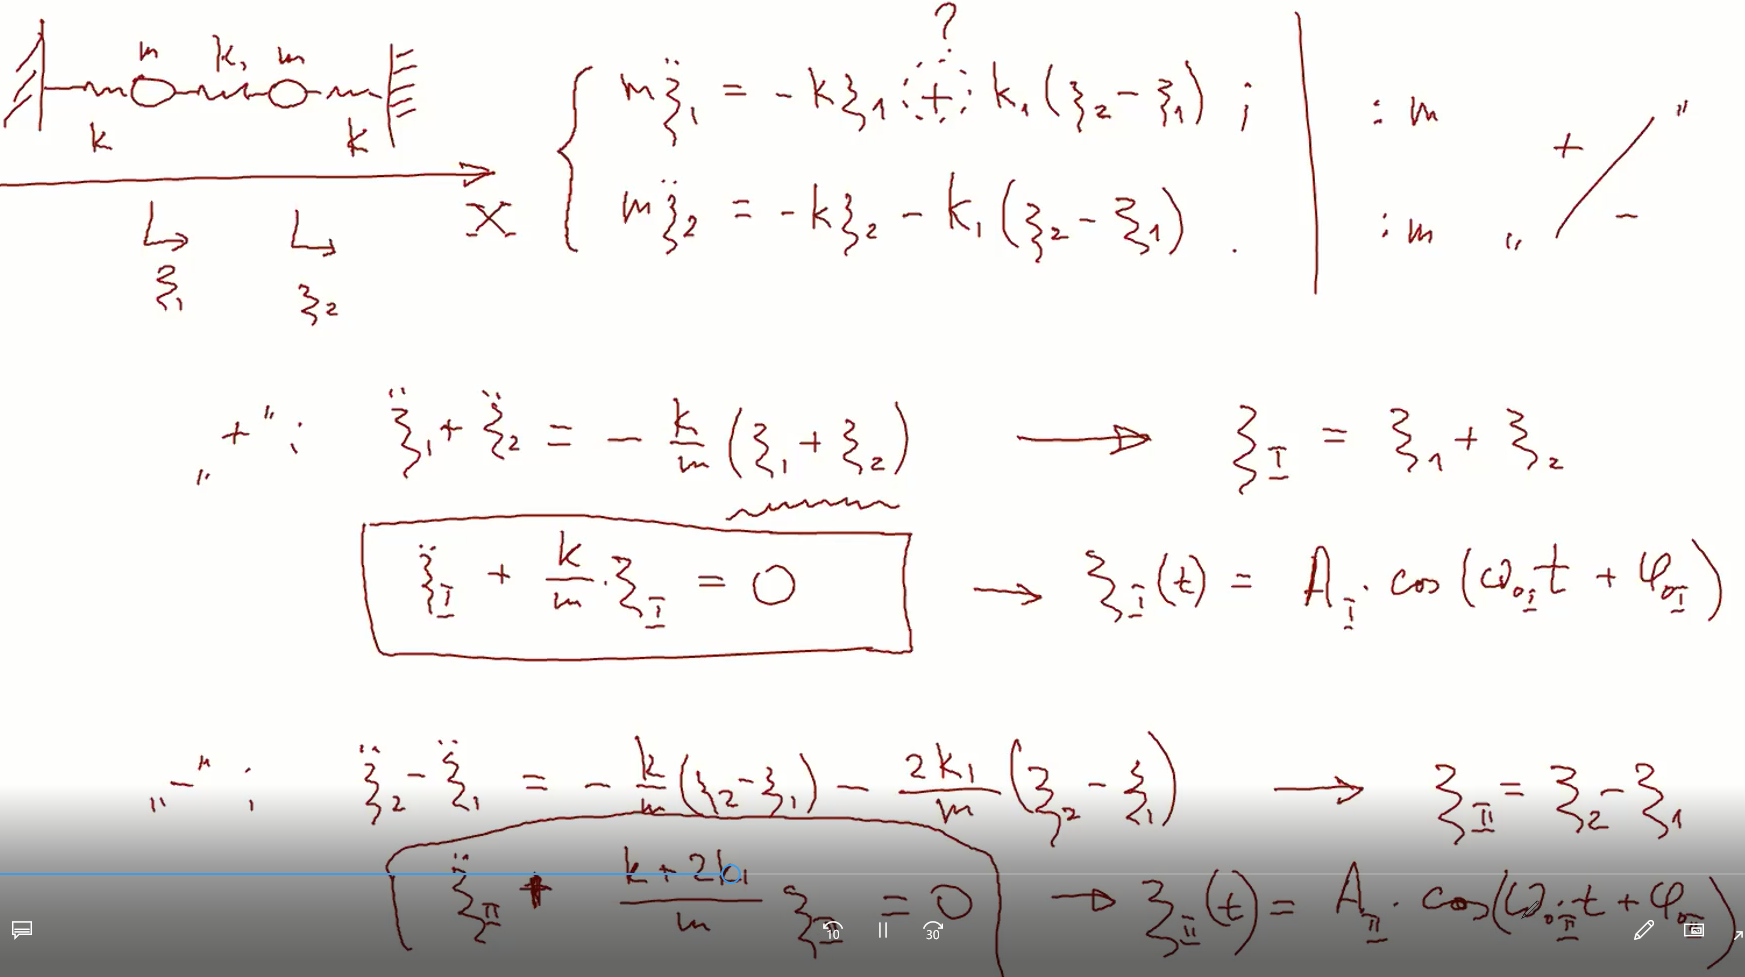 m k₁ m
k k
X
ξ₁ ξ₂
?
mξ̈₁ = - kξ₁ + k₁(ξ₂ - ξ₁) ; : m
mξ̈₂ = - kξ₂ - k₁(ξ₂ - ξ₁) . : m „+/-"
„+" : ξ̈₁ + ξ̈₂ = - k/m (ξ₁ + ξ₂) → ξ_I = ξ₁ + ξ₂
ξ̈_I + k/m · ξ_I = 0 → ξ_I(t) = A_I · cos(ω₀_I t + φ₀_I)
„-" : ξ̈₂ - ξ̈₁ = - k/m (ξ₂ - ξ₁) - 2k₁/m (ξ₂ - ξ₁) → ξ_II = ξ₂ - ξ₁
ξ̈_II + (k + 2k₁)/m ξ_II = 0 → ξ_II(t) = A_II · cos(ω₀_II t + φ₀_II)
10 30